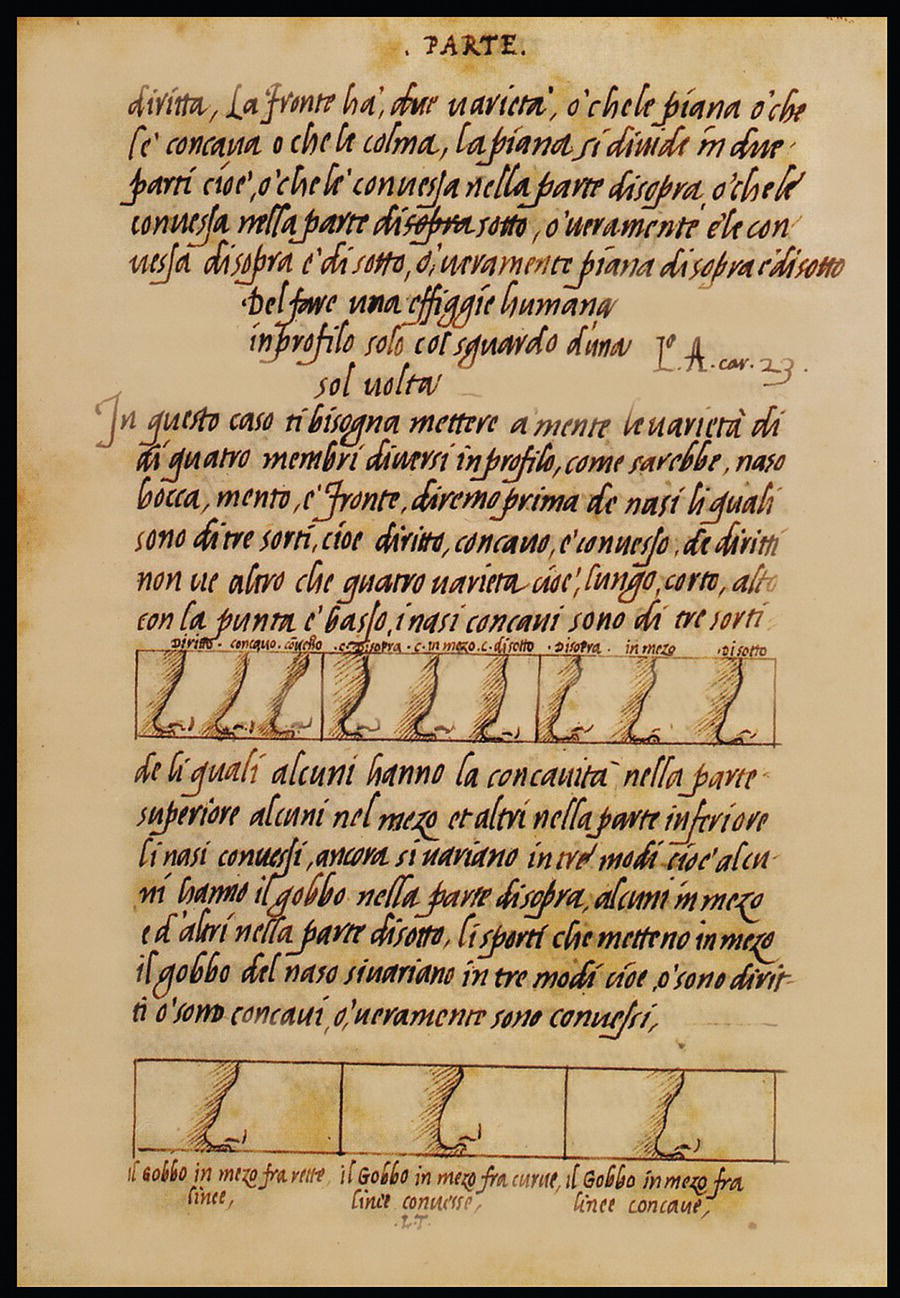 . PARTE.
diritta, La fronte ha, due varieta, o che le piana o che
le concaua o che le colma, la piana si diuide in due
parti cioe, o che le conuessa nella parte disopra, o che le
conuessa nella parte disopra sotto, o ueramente e le con
uessa disopra e di sotto, o, ueramente piana disopra e disotto
Del fare una effiggie humana
in profilo solo col sguardo d'una
sol uolta
Lo. A. car. 23.
In questo caso ti bisogna mettere a mente le uarietà di
di quatro membri diuersi in profilo, come sarebbe, naso
bocca, mento, e fronte, diremo prima de nasi li quali
sono di tre sorti, cioe diritto, concauo, e conuesso, de diritti
non ue altro che quatro uarieta cioe, lungo, corto, alto
con la punta e basso, i nasi concaui sono di tre sorti
Diritto. concauo. couesso .c. Disopra. c. in mezo. c. disotto . Disopra . in mezo . Disotto
de li quali alcuni hanno la concauità nella parte
superiore alcuni nel mezo et altri nella parte inferiore
li nasi conuessi, ancora si uariano in tre modi cioe alcu-
ni hanno il gobbo nella parte disopra, alcuni in mezo
e d'altri nella parte disotto, li sporti che metteno in mezo
il gobbo del naso si uariano in tre modi cioe, o sono dirit-
ti o sono concaui, o, ueramente sono conuessi,
il Gobbo in mezo fra rette
linee,
il Gobbo in mezo fra curue,
linee conuesse,
il Gobbo in mezo fra
linee concaue,
.L.T.